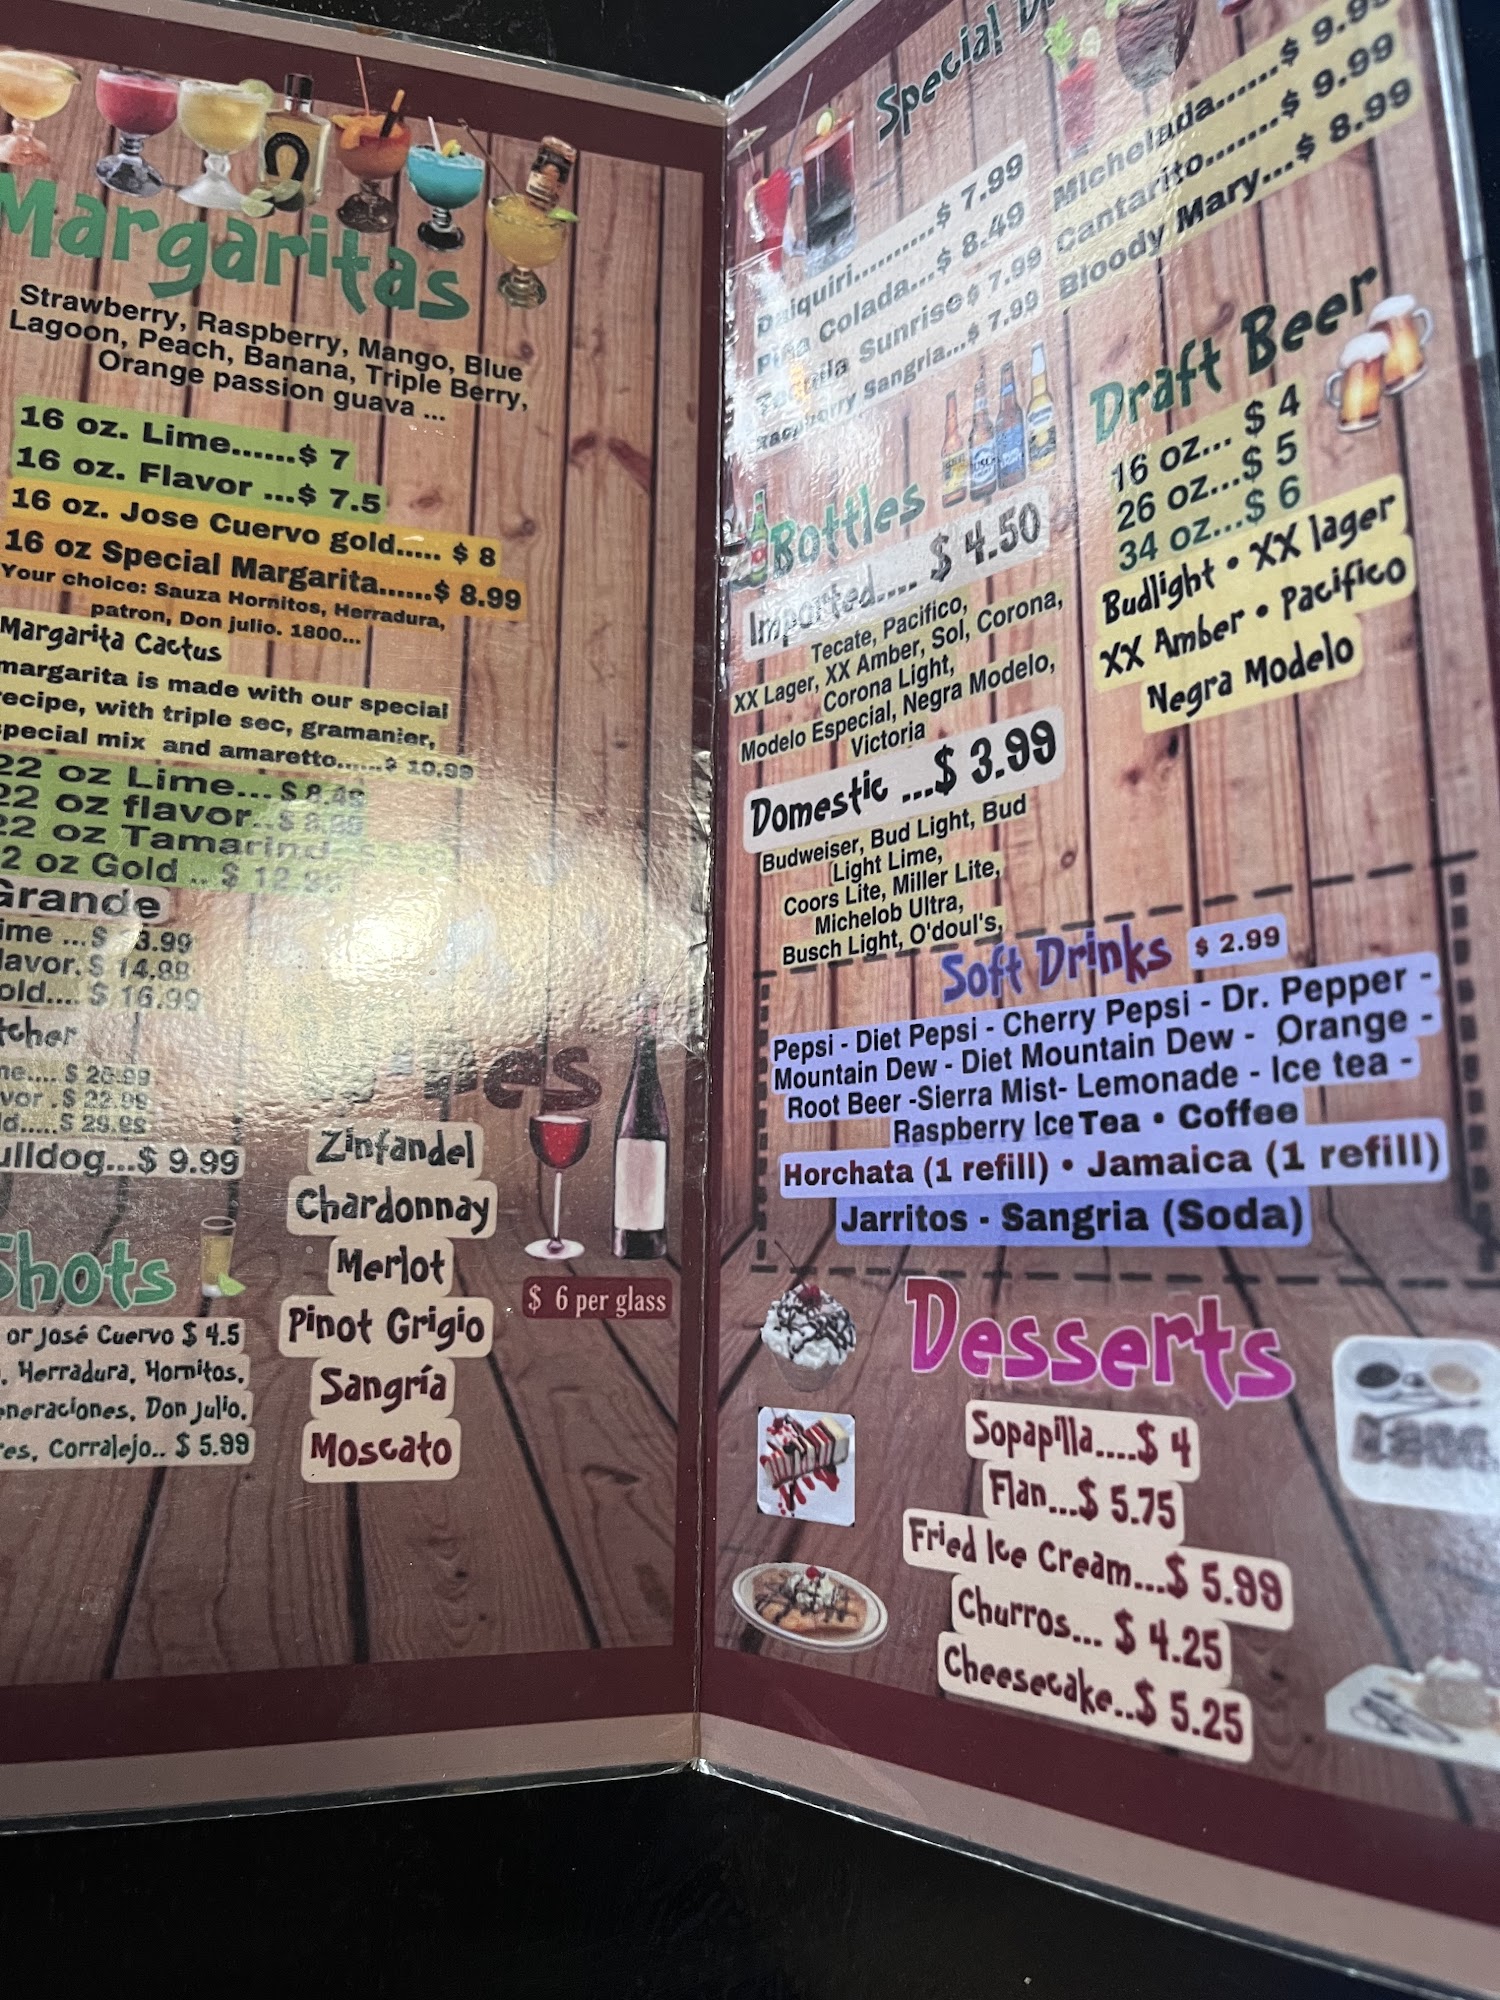 Margaritas
Strawberry, Raspberry, Mango, Blue
Lagoon, Peach, Banana, Triple Berry,
Orange passion guava ...
16 oz. Lime......$ 7
16 oz. Flavor ...$ 7.5
16 oz. Jose Cuervo gold..... $ 8
16 oz Special Margarita......$ 8.99
Your choice: Sauza Hornitos, Herradura,
patron, Don julio. 1800...
Margarita Cactus
margarita is made with our special
recipe, with triple sec, gramanier,
special mix and amaretto......$ 10.99
22 oz Lime... $ 8.49
22 oz flavor..$
22 oz Tamarind
2 oz Gold .. $ 12.99
Grande
ime ...$ 13.99
lavor. $ 14.99
old.... $ 16.99
tcher
ne....
vor . $ 22.99
ld.....$
ulldog...$ 9.99
Shots
or José Cuervo $ 4.5
, Herradura, Hornitos,
eneraciones, Don Julio,
res, Corralejo.. $ 5.99
Zinfandel
Chardonnay
Merlot
Pinot Grigio
Sangría
Moscato
$ 6 per glass
Special
Daiquiri..........$ 7.99
Piña Colada...$ 8.49
Tequila Sunrise $ 7.99
Raspberry Sangria...$ 7.99
Michelada......$ 9.99
Cantarito.......$ 9.99
Bloody Mary...$ 8.99
Bottles
Imported.... $ 4.50
Tecate, Pacifico,
XX Lager, XX Amber, Sol, Corona,
Corona Light,
Modelo Especial, Negra Modelo,
Victoria
Domestic ...$ 3.99
Budweiser, Bud Light, Bud
Light Lime,
Coors Lite, Miller Lite,
Michelob Ultra,
Busch Light, O'doul's,
Draft Beer
16 oz... $ 4
26 oz...$ 5
34 oz...$ 6
Budlight • XX lager
XX Amber • Pacifico
Negra Modelo
Soft Drinks $ 2.99
Pepsi - Diet Pepsi - Cherry Pepsi - Dr. Pepper -
Mountain Dew - Diet Mountain Dew - Orange -
Root Beer -Sierra Mist- Lemonade - Ice tea -
Raspberry Ice Tea • Coffee
Horchata (1 refill) • Jamaica (1 refill)
Jarritos - Sangria (Soda)
Desserts
Sopapilla....$ 4
Flan...$ 5.75
Fried Ice Cream...$ 5.99
Churros... $ 4.25
Cheesecake..$ 5.25